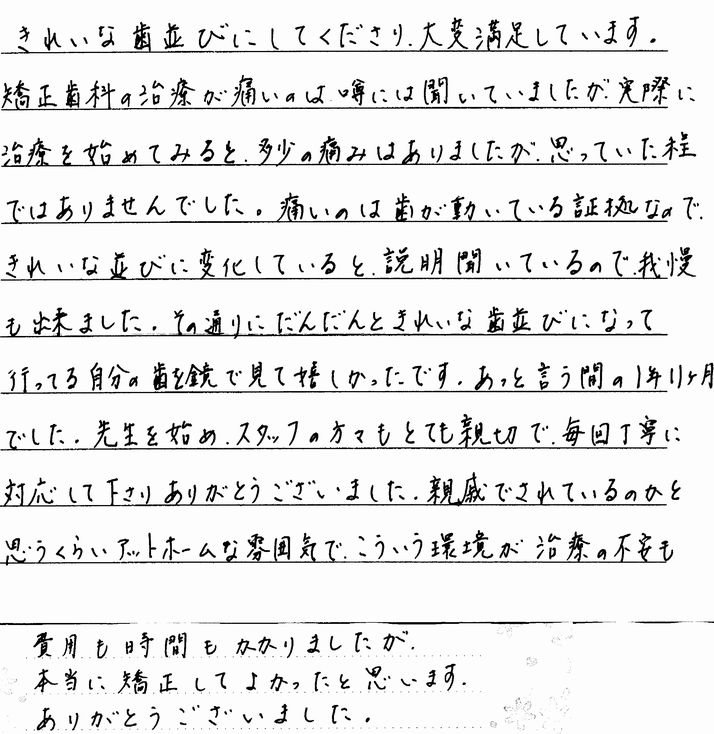 きれいな歯並びにしてくださり、大変満足しています。
矯正歯科の治療が痛いのは噂には聞いていましたが、実際に
治療を始めてみると、多少の痛みはありましたが、思っていた程
ではありませんでした。痛いのは歯が動いている証拠なので、
きれいな並びに変化していると、説明聞いているので、我慢
も出来ました。その通りにだんだんときれいな歯並びになって
行ってる自分の歯を鏡で見て嬉しかったです。あっと言う間の1年11ヶ月
でした。先生を始め、スタッフの方々もとても親切で、毎回丁寧に
対応して下さりありがとうございました。親戚でされているのかと
思うくらいアットホームな雰囲気で、こういう環境が治療の不安も
費用も時間もかかりましたが、
本当に矯正してよかったと思います。
ありがとうございました。